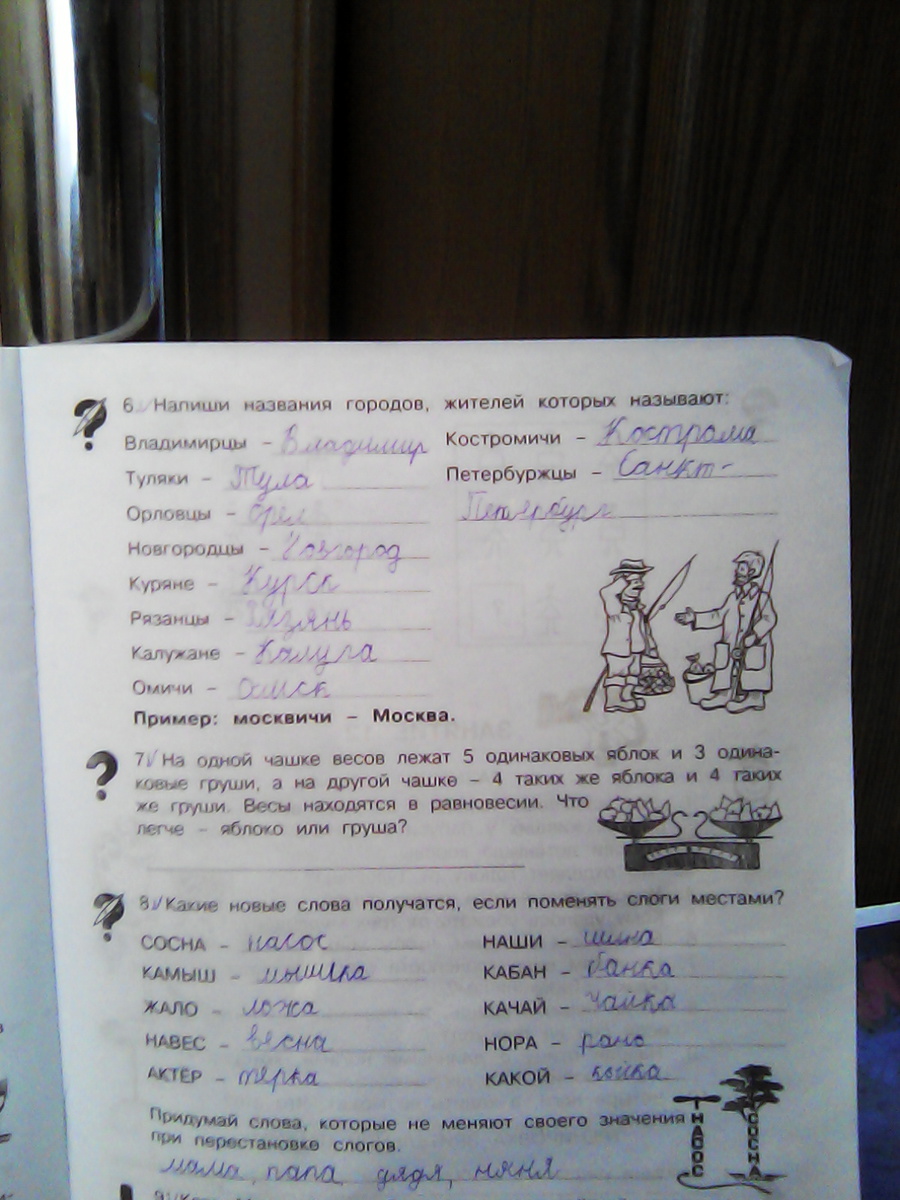 6. Напиши названия городов, жителей которых называют:
Владимирцы – Владимир
Туляки – Тула
Орловцы – Орел
Новгородцы – Новгород
Куряне – Курск
Рязанцы – Рязань
Калужане – Калуга
Омичи – Омск
Костромичи – Кострома
Петербуржцы – Санкт-
Петербург
Пример: москвичи – Москва.
7. На одной чашке весов лежат 5 одинаковых яблок и 3 одина-
ковые груши, а на другой чашке – 4 таких же яблока и 4 таких
же груши. Весы находятся в равновесии. Что
легче – яблоко или груша?
8. Какие новые слова получатся, если поменять слоги местами?
СОСНА – насос
КАМЫШ – мышка
ЖАЛО – ложа
НАВЕС – весна
АКТЕР – терка
НАШИ – шина
КАБАН – банка
КАЧАЙ – чайка
НОРА – рано
КАКОЙ – койка
Придумай слова, которые не меняют своего значения
при перестановке слогов.
мама, папа, дядя, няня
НАСОС
СОСНА